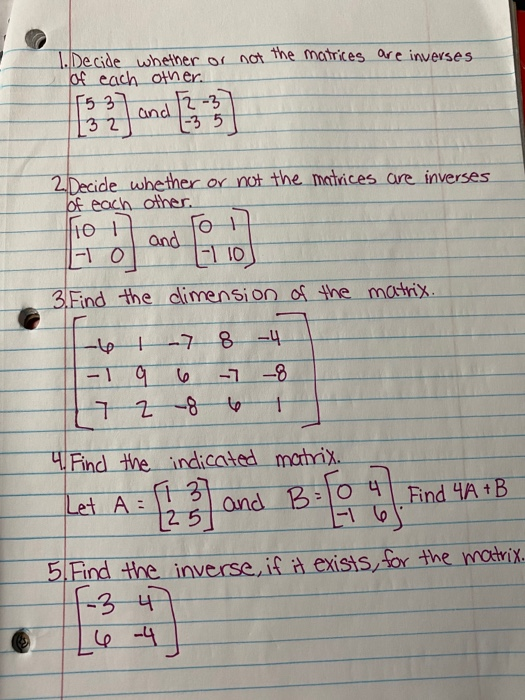 1. Decide whether or not the matrices are inverses
of each other.
[5 3
3 2] and [2 -3
-3 5]
2. Decide whether or not the matrices are inverses
of each other.
[10 1
-1 0] and [0 1
-1 10]
3. Find the dimension of the matrix.
[-6 1 -7 8 -4
-1 9 6 -7 -8
7 2 -8 6 1]
4. Find the indicated matrix.
Let A = [1 3
2 5] and B = [0 4
-1 6]. Find 4A + B
5. Find the inverse, if it exists, for the matrix.
[-3 4
6 -4]